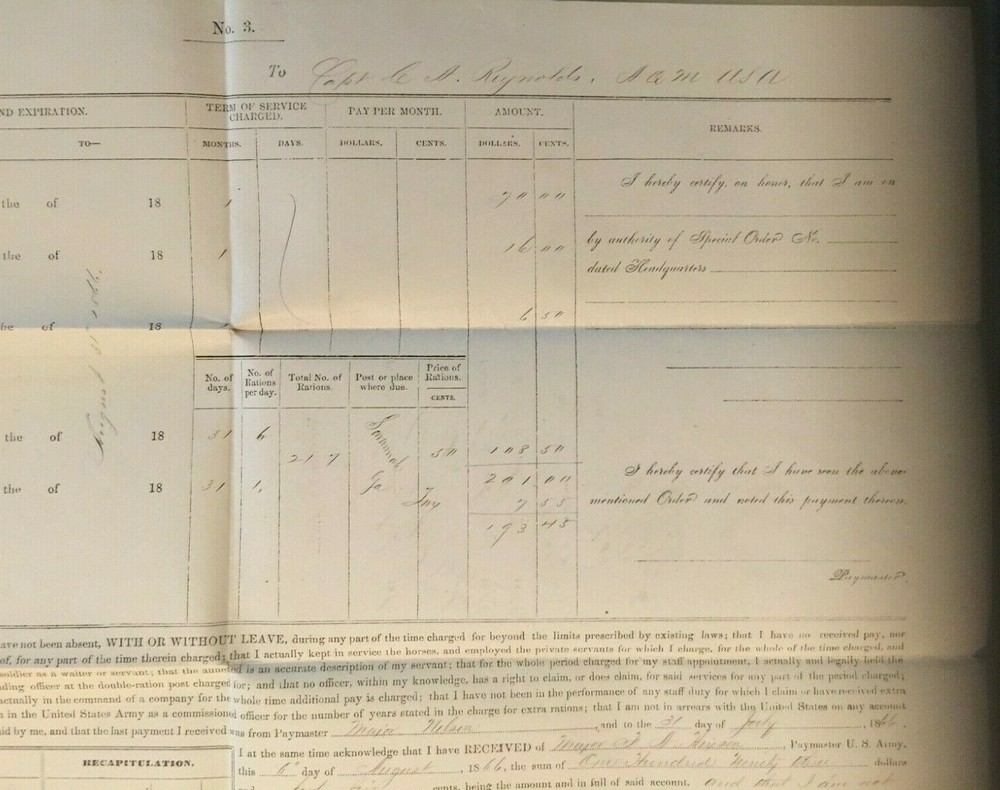 No. 3.
To Capt C A. Reynolds, A Q M USA
ND EXPIRATION.
TERM OF SERVICE CHARGED.
PAY PER MONTH.
AMOUNT.
REMARKS.
TO—
MONTHS.
DAYS.
DOLLARS.
CENTS.
DOLLARS.
CENTS.
the of 18 1 70 00
I hereby certify, on honor, that I am on
the of 18 1 16 00
by authority of Special Order No.
dated Headquarters
he of 18 6 50
August 31st 1866.
No. of days.
No. of Rations per day.
Total No. of Rations.
Post or place where due.
Price of Rations.
CENTS.
the of 18 31 6
217 50 108 50
201 00
I hereby certify that I have seen the above
the of 18 31 1 Ga Tax 7 55
mentioned Order and noted this payment thereon.
193 45
Paymaster.
ave not been absent, WITH OR WITHOUT LEAVE, during any part of the time charged for beyond the limits prescribed by existing laws; that I have no received pay, nor
of, for any part of the time therein charged; that I actually kept in service the horses, and employed the private servants for which I charge, for the whole of the time charged, and
soldier as a waiter or servant; that the annexed is an accurate description of my servant; that for the whole period charged for my staff appointment, I actually and legally held the
ding officer at the double-ration post charged for; and that no officer, within my knowledge, has a right to claim, or does claim, for said services for any part of the period charged;
actually in the command of a company for the whole time additional pay is charged; that I have not been in the performance of any staff duty for which I claim or have received extra
n in the United States Army as a commissioned officer for the number of years stated in the charge for extra rations; that I am not in arrears with the United States on any account
id by me, and that the last payment I received was from Paymaster Major Nelson, and to the 31 day of July, 1866.
I at the same time acknowledge that I have RECEIVED of Major, Paymaster U. S. Army,
RECAPITULATION.
this 6" day of August, 1866, the sum of One Hundred Ninety three dollars
cents, being the amount and in full of said account. and that I am not